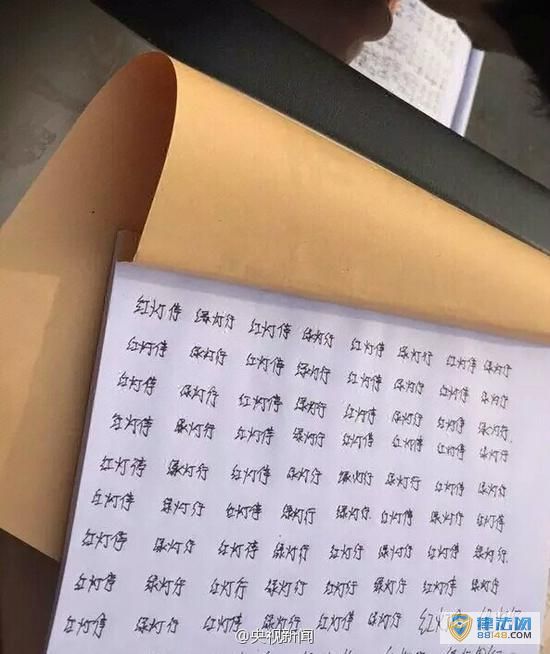 红灯停 绿灯行 红灯停 绿灯行 红灯停 绿灯行 红灯停 绿灯行
红灯停 绿灯行 红灯停 绿灯行 红灯停 绿灯行 红灯停 绿灯行
红灯停 绿灯行 红灯停 绿灯行 红灯停 绿灯行 红灯停 绿灯行.
红灯停 绿灯行 红灯停 绿灯行 红灯停 红灯停 红灯停 绿灯行
红灯停 绿灯行 红灯停 绿灯行 绿灯行 绿灯行 红灯停 绿灯行
红灯停 绿灯行 红灯停 绿灯行 绿灯行. 红灯停 绿灯行 红灯停
红灯停 绿灯行 红灯停 绿灯行 红灯行 绿灯行 红灯停 绿灯行.
红灯停 绿灯行 红灯行 绿灯行 红灯行 绿灯行 红灯停 绿灯行
红灯停 绿灯行 红灯停 绿灯行 红灯停 绿灯行 红灯
@央视新闻
律法网
88148.COM